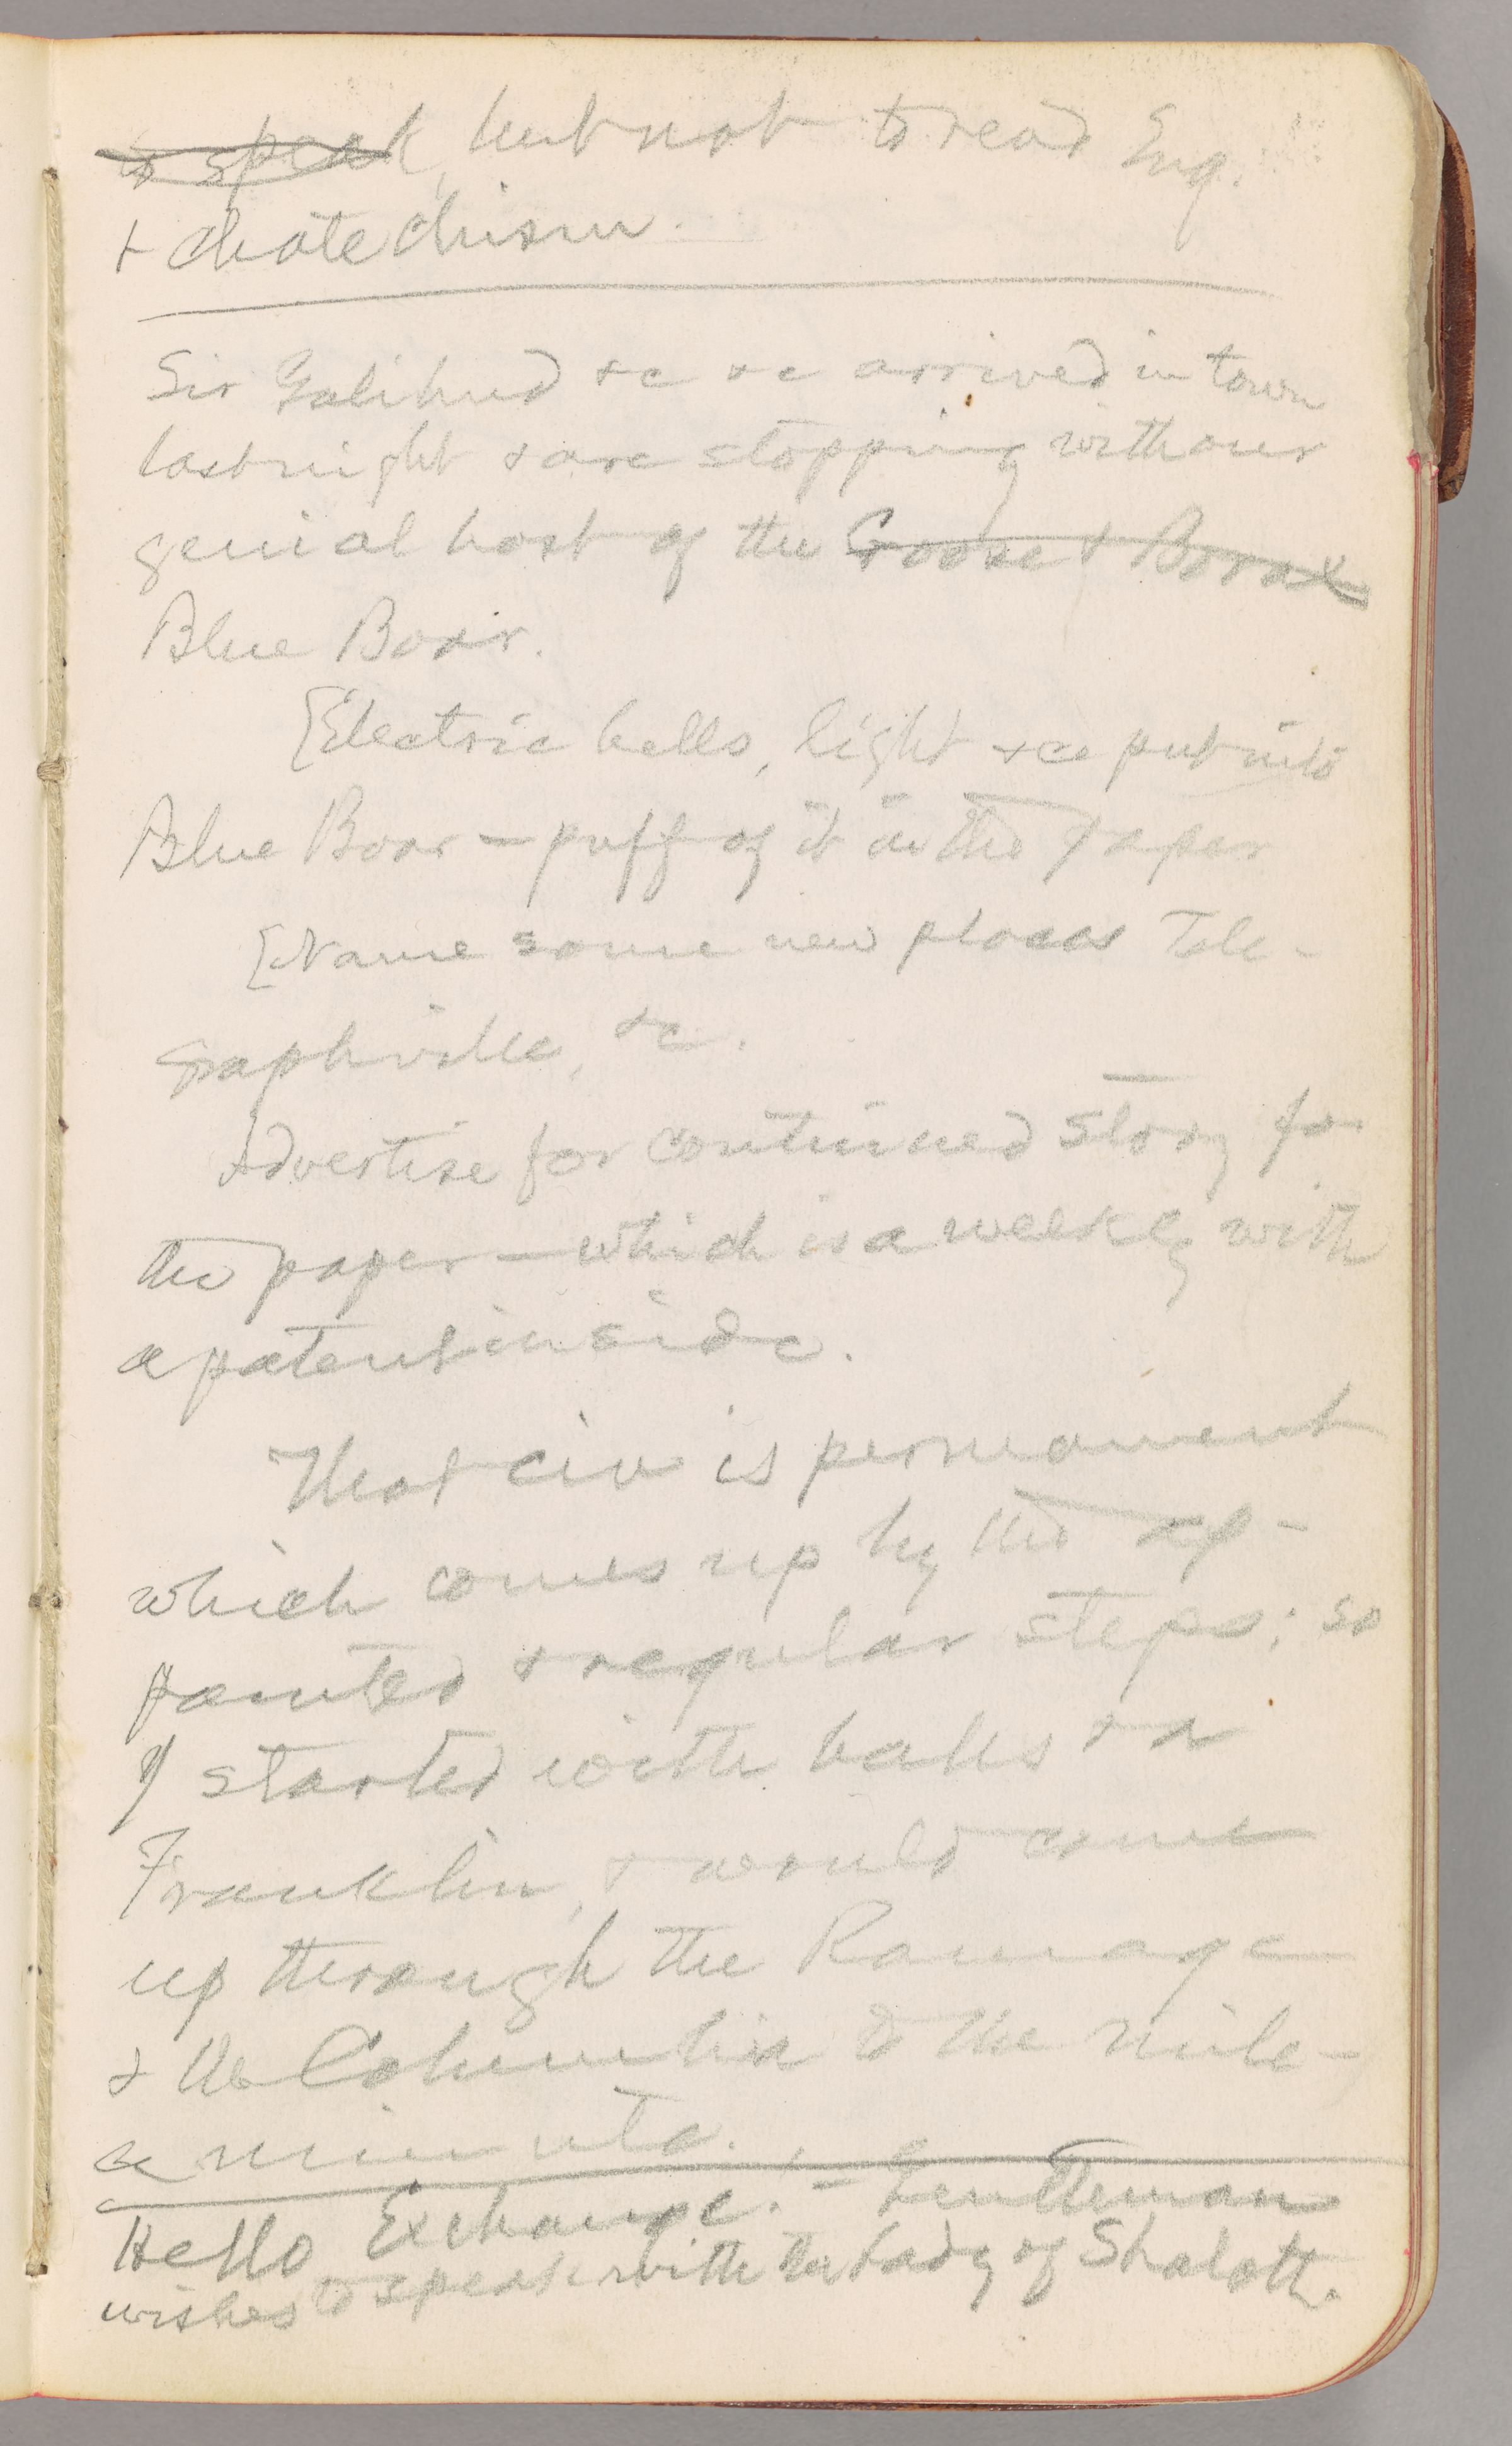 to speak, but not to read Eng.
+ chatechism.
Sir Galihud &c &c arrived in town
last night & are stopping with our
genial host of the Goose & Borax
Blue Boar.
[Electric bells, light &ce put into
Blue Boar — puff of it in the paper
[Name some new places Tele-
graphville, &c.
Advertise for continued story for
the paper — which is a weekly with
a patent inside.
That civ is permanent
which comes up by the ap-
pointed & regular steps; so
I started with balls & a
Franklin, & would come
up through the Ramage
& the Columbia to the mile-
a minute.
Hello Exchange! — Gentleman
wishes to speak with the Lady of Shalott.